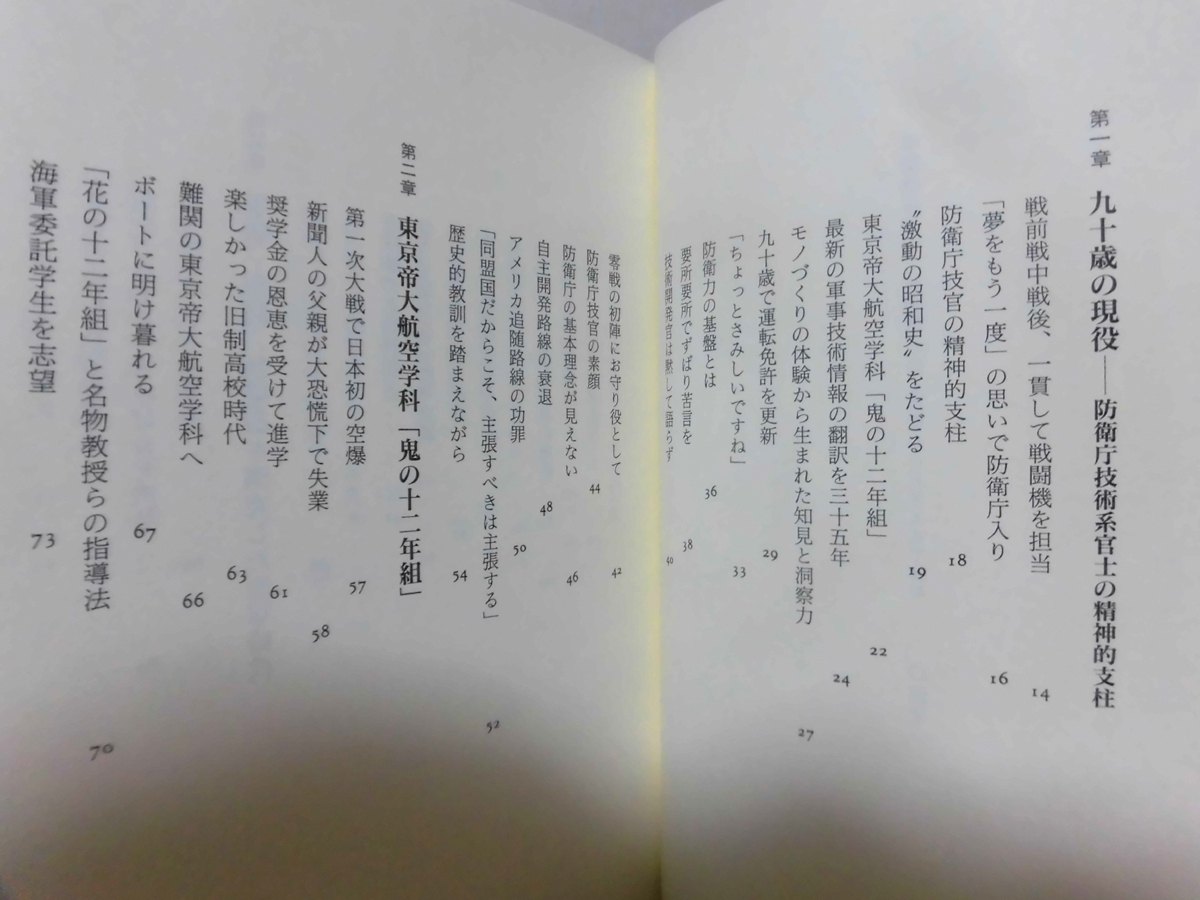 第一章 九十歳の現役――防衛庁技術系官士の精神的支柱
戦前戦中戦後、一貫して戦闘機を担当 14
「夢をもう一度」の思いで防衛庁入り 16
防衛庁技官の精神的支柱 18
〝激動の昭和史〟をたどる 19
東京帝大航空学科「鬼の十二年組」 22
最新の軍事技術情報の翻訳を三十五年 24
モノづくりの体験から生まれた知見と洞察力 27
九十歳で運転免許を更新 29
「ちょっとさみしいですね」 33
防衛力の基盤とは 36
要所要所でずばり苦言を 38
技術開発官は黙して語らず 40
零戦の初陣にお守り役として 42
防衛庁技官の素顔 44
防衛庁の基本理念が見えない 46
自主開発路線の衰退 48
アメリカ追随路線の功罪 50
「同盟国だからこそ、主張すべきは主張する」 52
歴史的教訓を踏まえながら 54
第二章 東京帝大航空学科「鬼の十二年組」
第一次大戦で日本初の空爆 57
新聞人の父親が大恐慌下で失業 58
奨学金の恩恵を受けて進学 61
楽しかった旧制高校時代 63
難関の東京帝大航空学科へ 66
ボートに明け暮れる 67
「花の十二年組」と名物教授らの指導法 70
海軍委託学生を志望 73